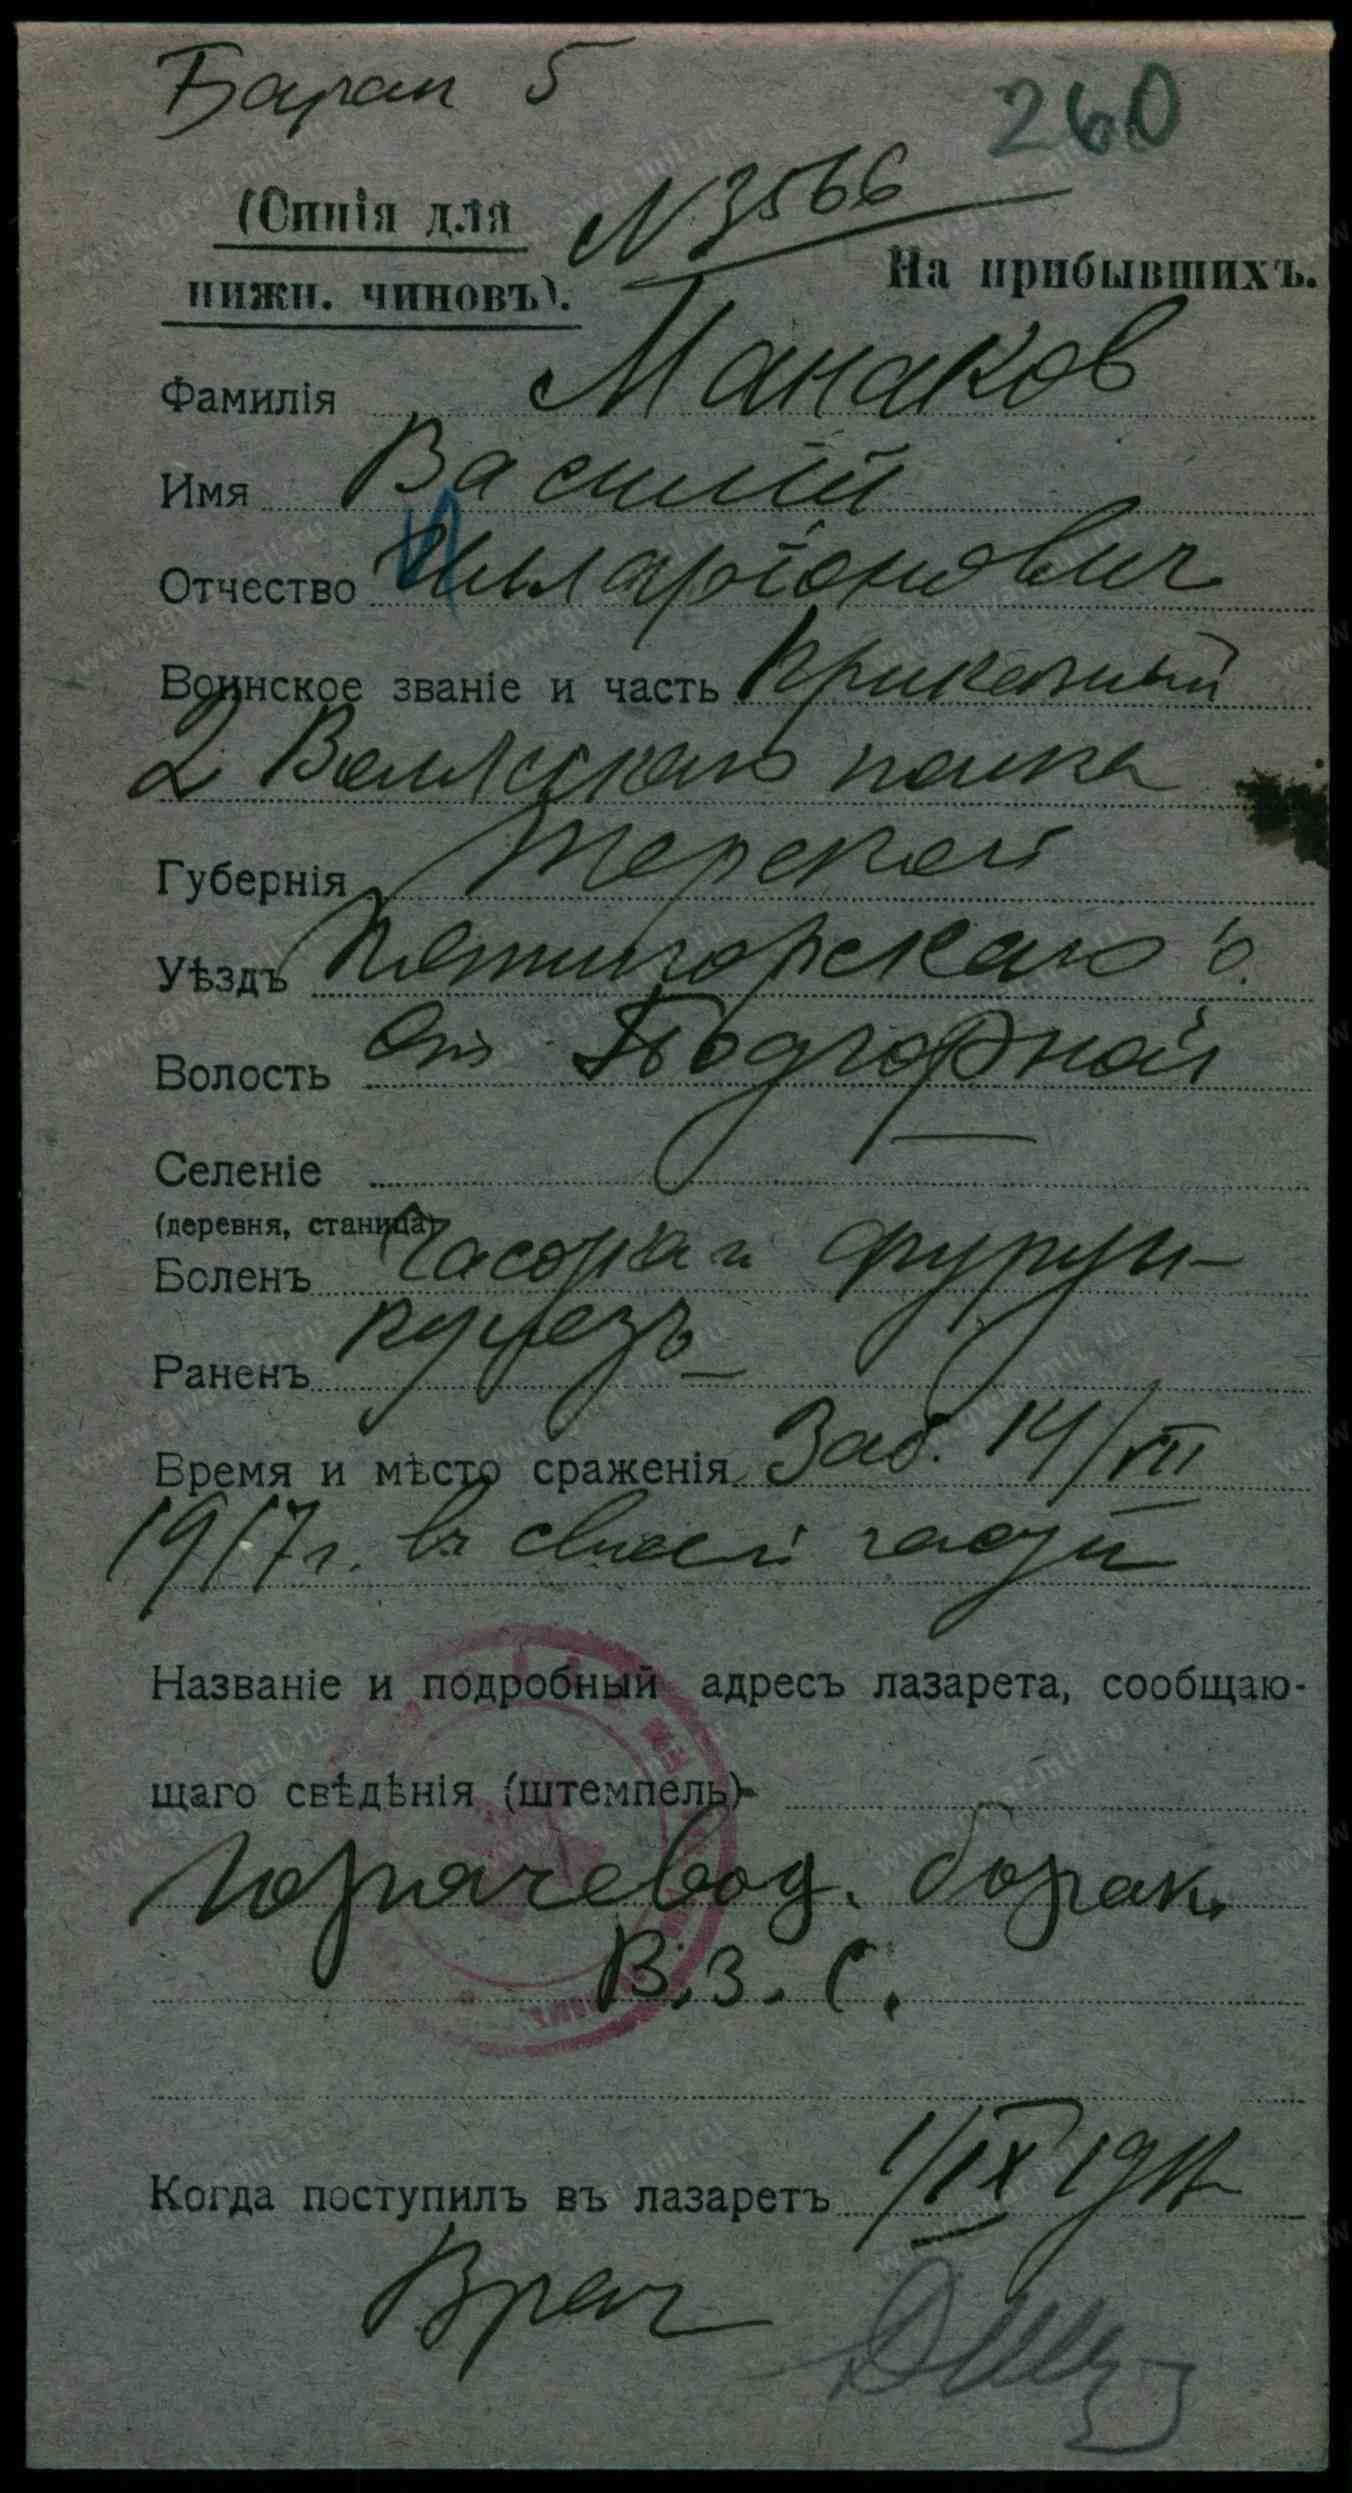 Барак 5
260
(Синія для
нижн. чиновъ).
N 3566
На прибывшихъ.
Фамилія Манаков
Имя Василій
Отчество Илларіонович
Воинское званіе и часть Приказный
2 Волжскаго полка
Губернія Терской
Уѣздъ Пятигорскаго о.
Волость Ст. Подгорной
Селеніе
(деревня, станица)
Боленъ Часотка и фурун-
кулезъ
Раненъ
Время и мѣсто сраженія Заб. 14/VII
1917 г. въ своей части
Названіе и подробный адресъ лазарета, сообщаю-
щаго свѣдѣнія (штемпель)-
Горячевод. барак.
В.З.С.
Когда поступилъ въ лазаретъ 1/IX 1917
Врач